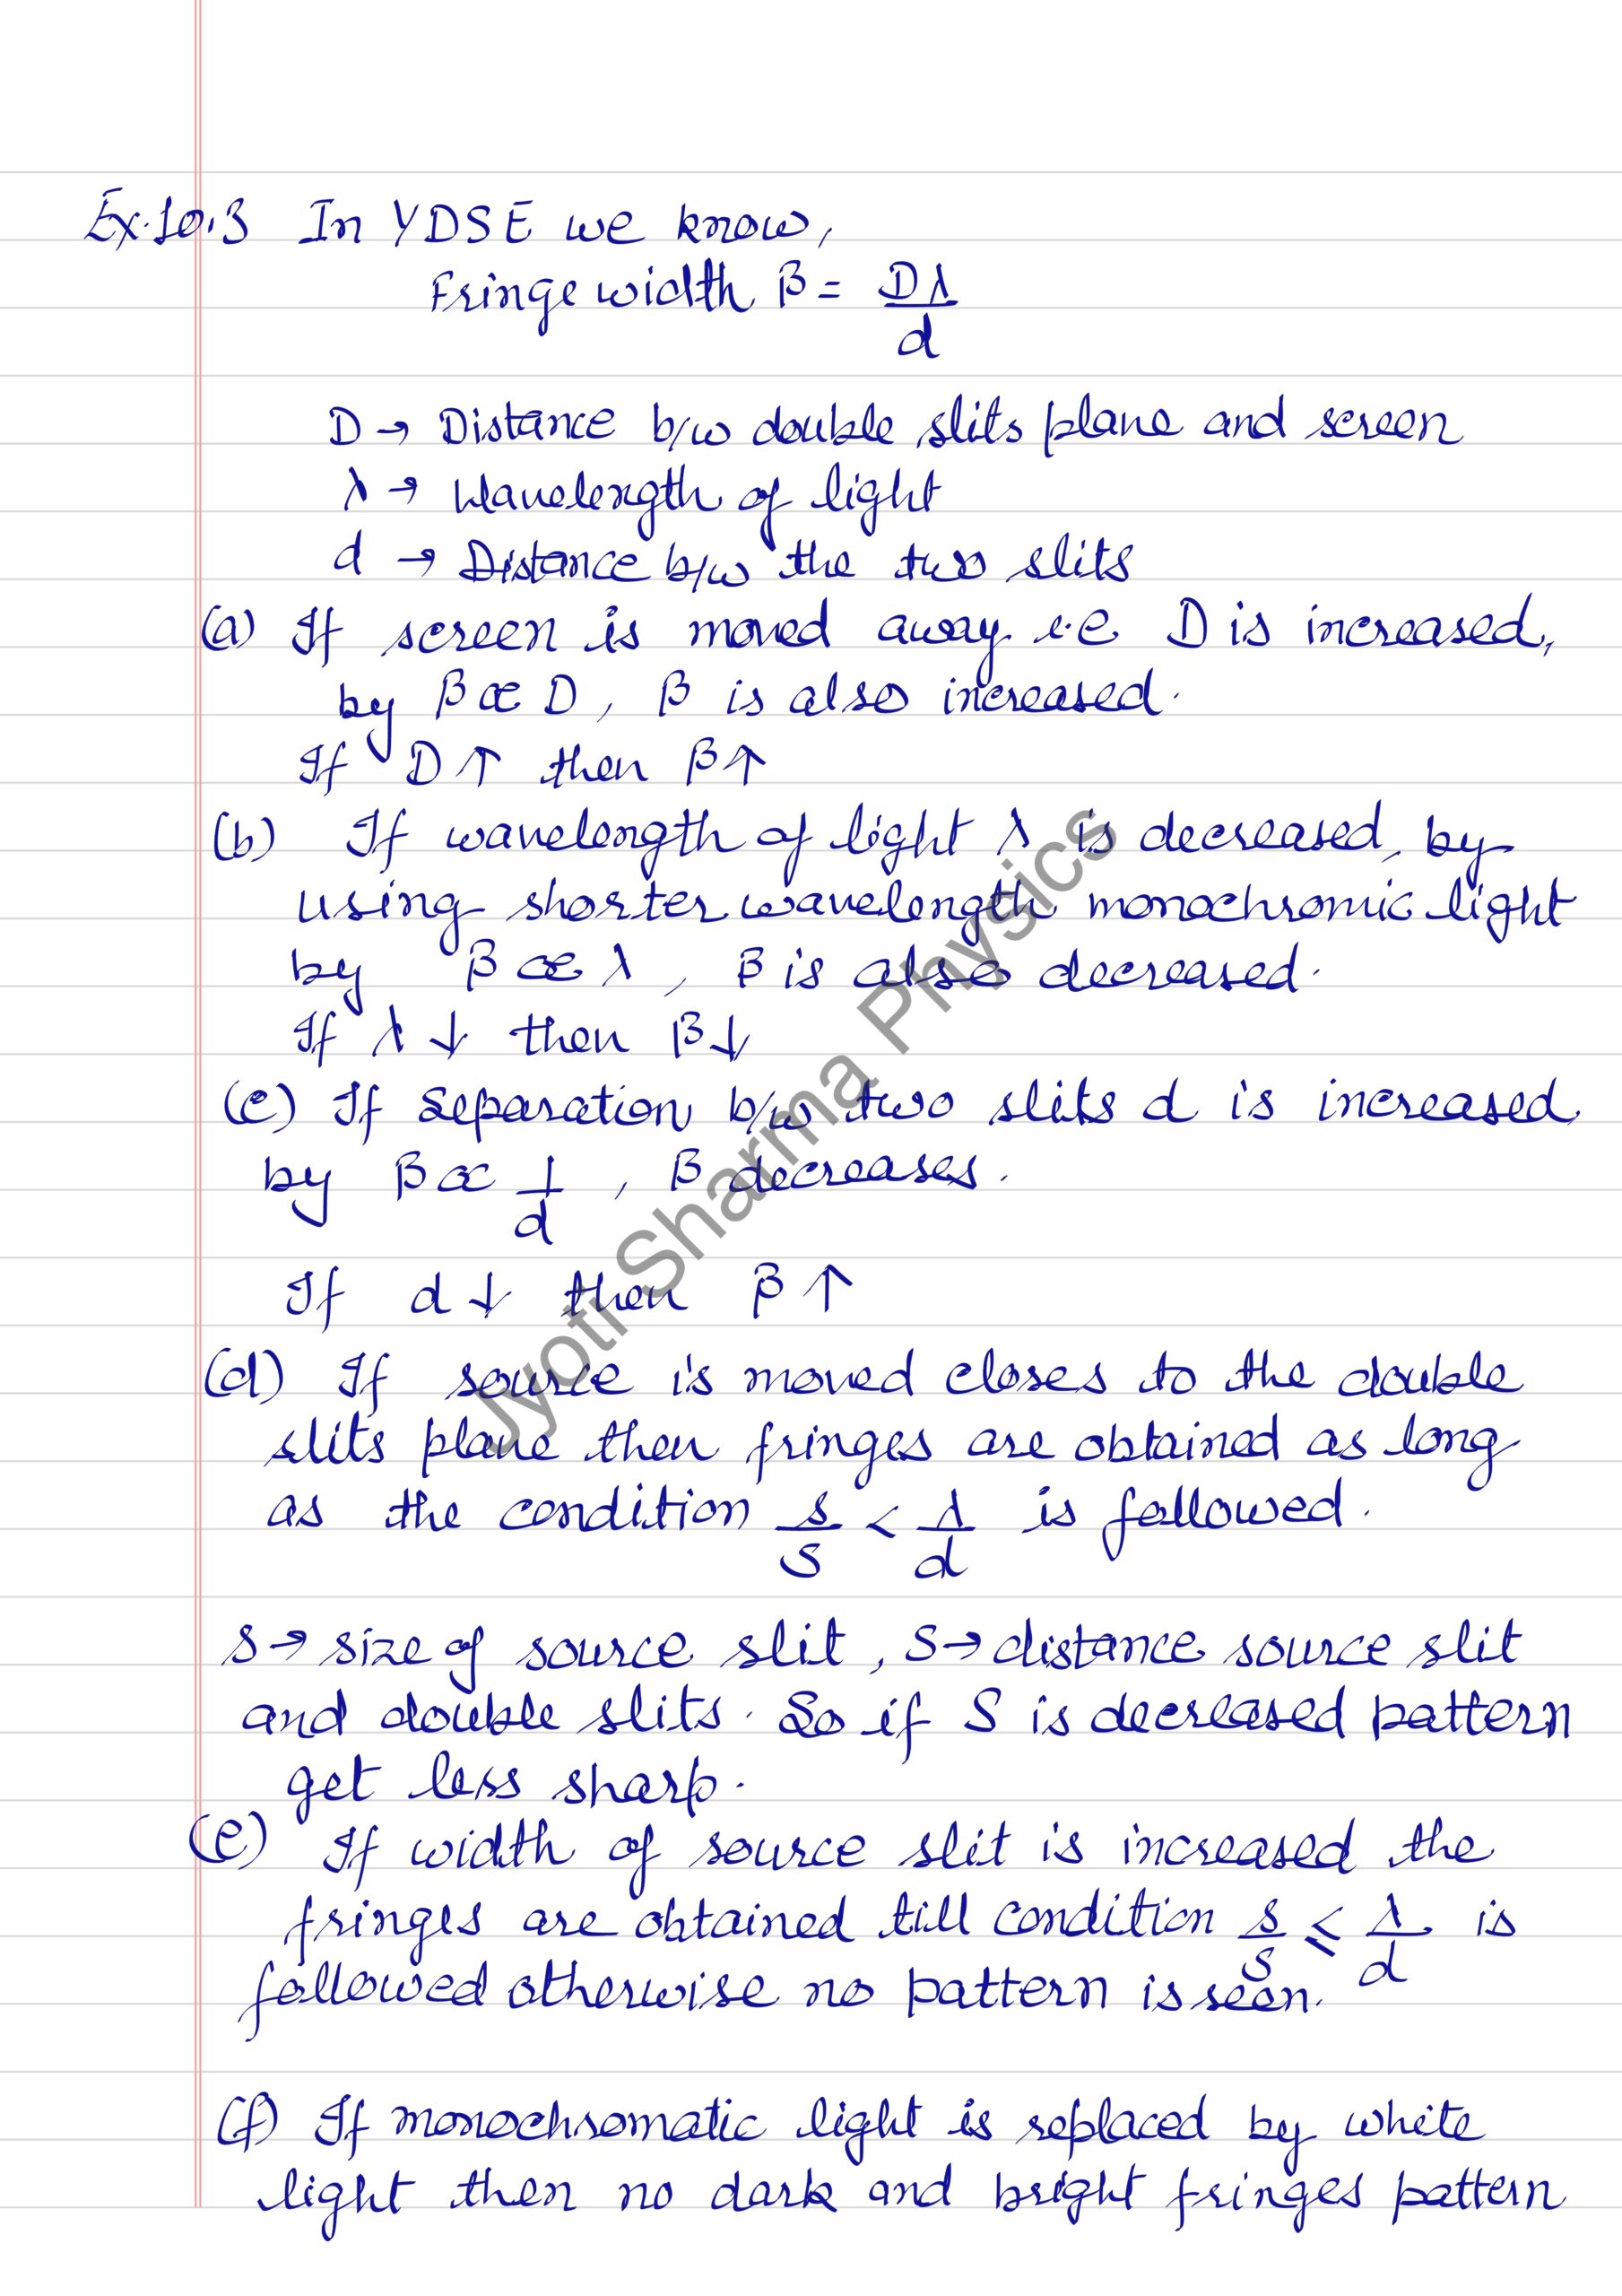 Ex.10.3 In YDSE we know,
Fringe width β = Dλ/d
D → Distance b/w double slits plane and screen
λ → Wavelength of light
d → Distance b/w the two slits
(a) If screen is moved away i.e D is increased,
by β ∝ D, β is also increased.
If D↑ then β↑
(b) If wavelength of light λ is decreased, by
using shorter wavelength monochromic light
by β ∝ λ, β is also decreased.
If λ↓ then β↓
(c) If separation b/w two slits d is increased,
by β ∝ 1/d, β decreases.
If d↓ then β↑
(d) If source is moved closes to the double
slits plane then fringes are obtained as long
as the condition s/S < λ/d is followed.
s → size of source slit, S → distance source slit
and double slits. So if S is decreased pattern
get less sharp.
(e) If width of source slit is increased the
fringes are obtained till condition s/S ≤ λ/d is
followed otherwise no pattern is seen.
(f) If monochromatic light is replaced by white
light then no dark and bright fringes pattern
Jyoti Sharma Physics